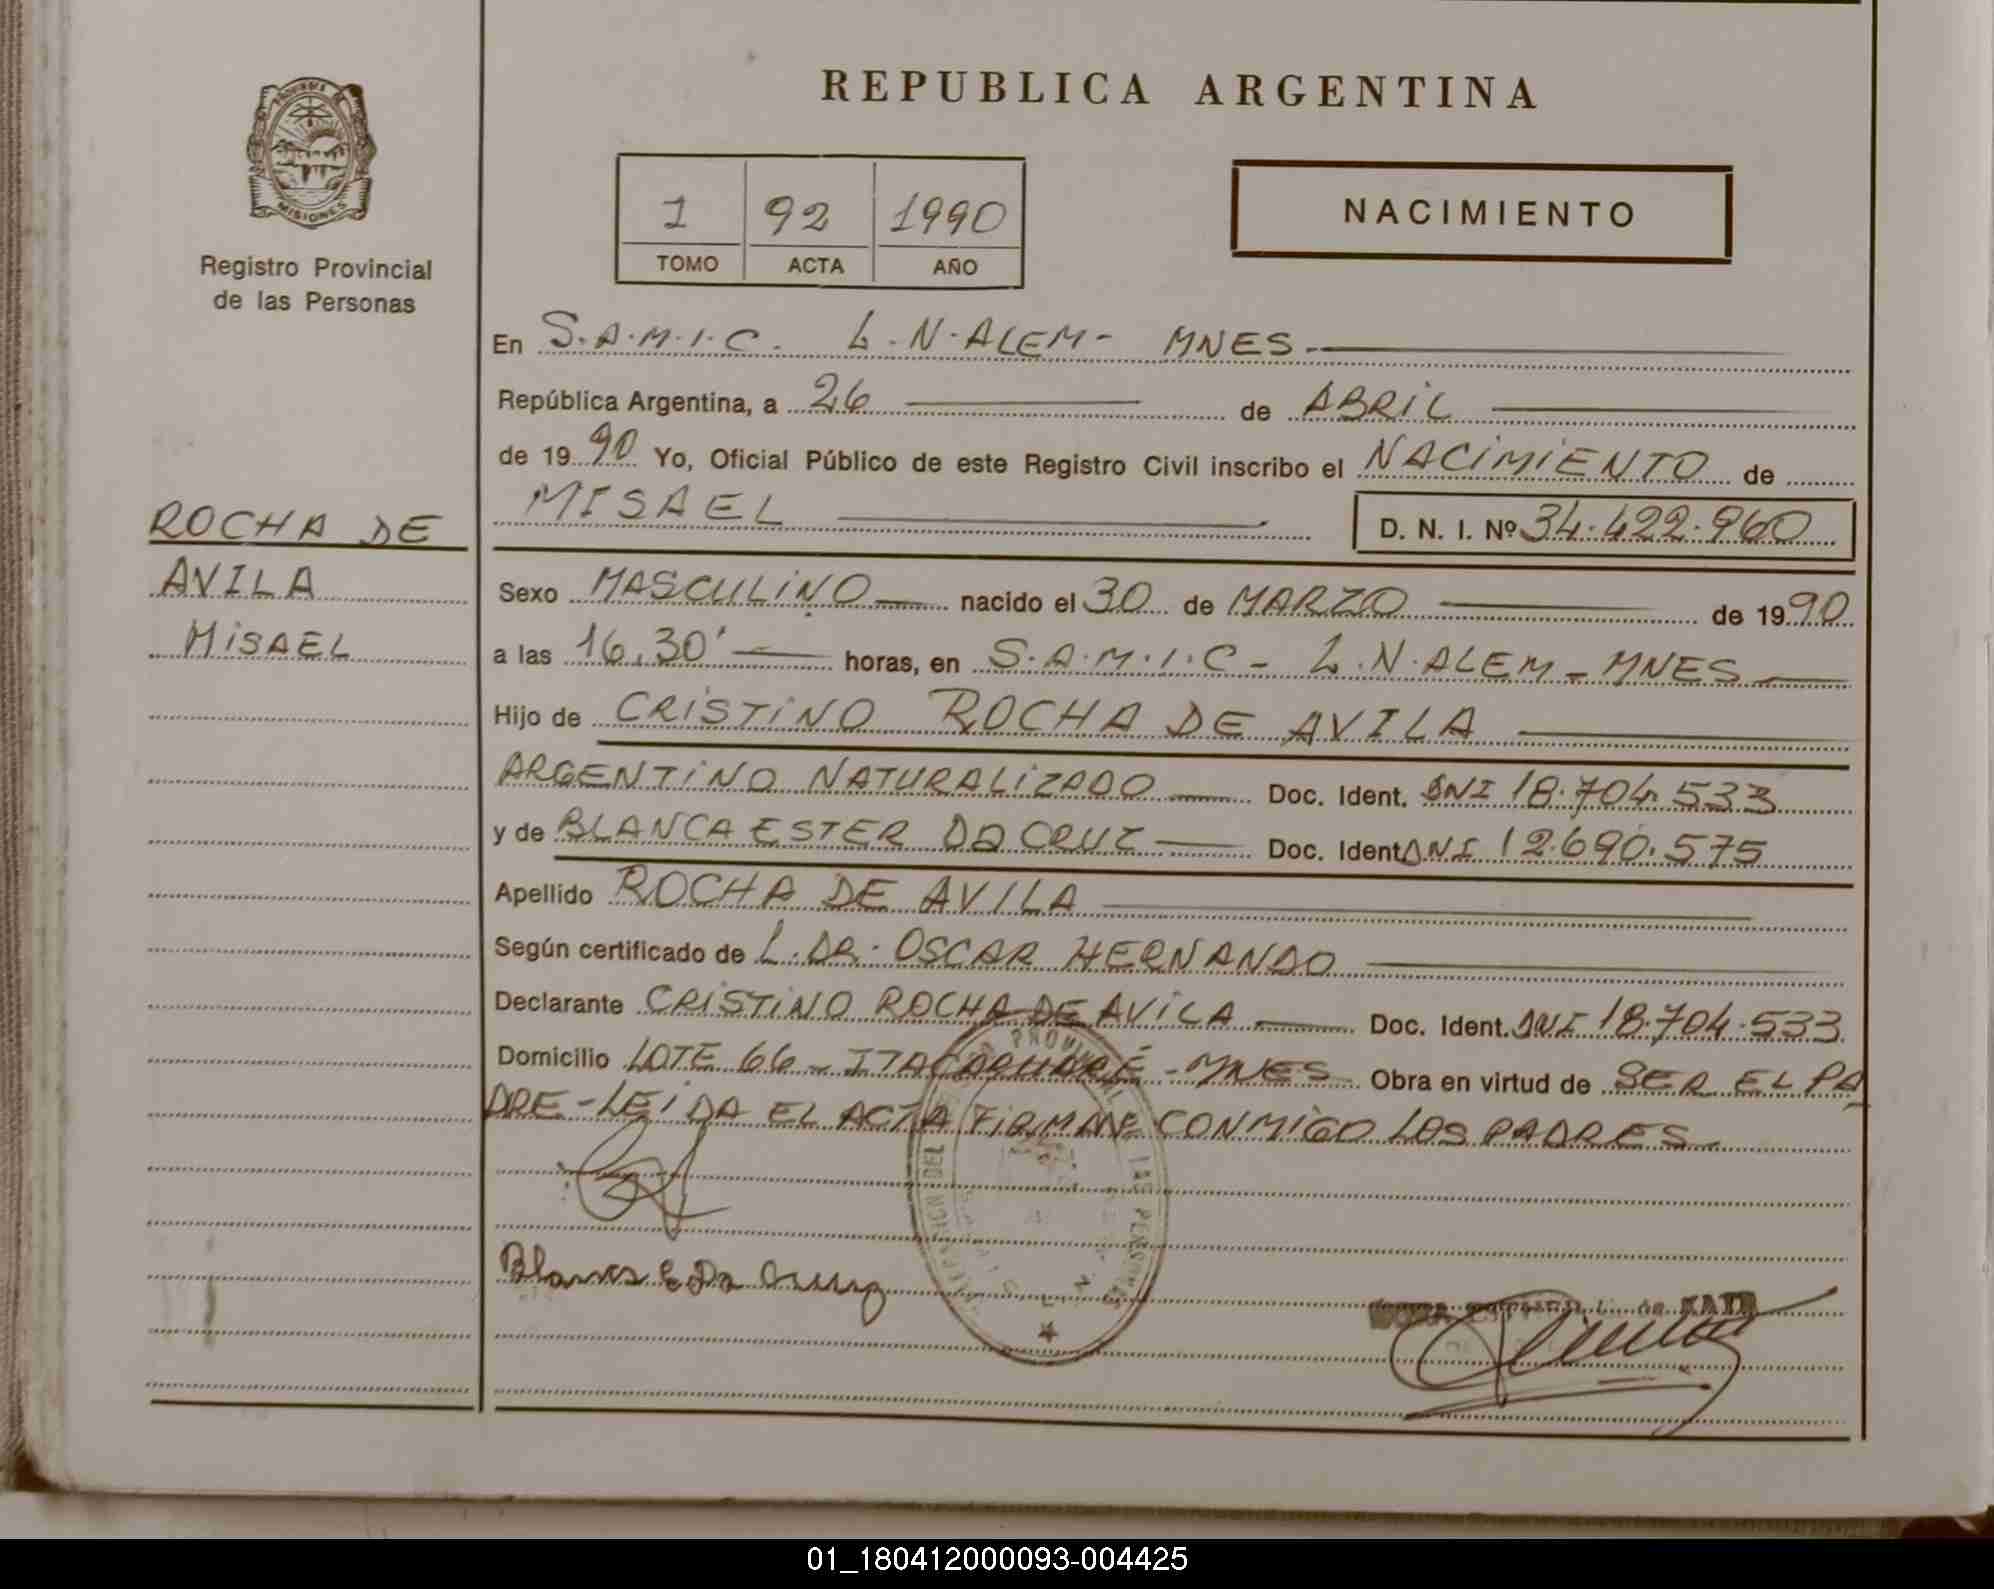 REPUBLICA ARGENTINA
PROVINCIA DE
MISIONES
Registro Provincial
de las Personas
1 92 1990
TOMO ACTA AÑO
NACIMIENTO
En S.A.M.I.C. L.N.ALEM- MNES.
República Argentina, a 26 de ABRIL
de 1990 Yo, Oficial Público de este Registro Civil inscribo el NACIMIENTO de
MISAEL D. N. I. Nº 34.422.960
ROCHA DE
AVILA
MISAEL
Sexo MASCULINO nacido el 30 de MARZO de 1990
a las 16,30' horas, en S.A.M.I.C - L.N.ALEM - MNES
Hijo de CRISTINO ROCHA DE AVILA
ARGENTINO NATURALIZADO Doc. Ident. DNI 18.704.533
y de BLANCA ESTER DA CRUZ Doc. Ident DNI 12.690.575
Apellido ROCHA DE AVILA
Según certificado de L.DR. OSCAR HERNANDO
Declarante CRISTINO ROCHA DE AVILA Doc. Ident. DNI 18.704.533
Domicilio LOTE 66 - ITACARUARÉ - MNES Obra en virtud de SER EL PA
DRE - LEIDA EL ACTA FIRMAN CONMIGO LOS PADRES
Blanca E Da Cruz
01_180412000093-004425